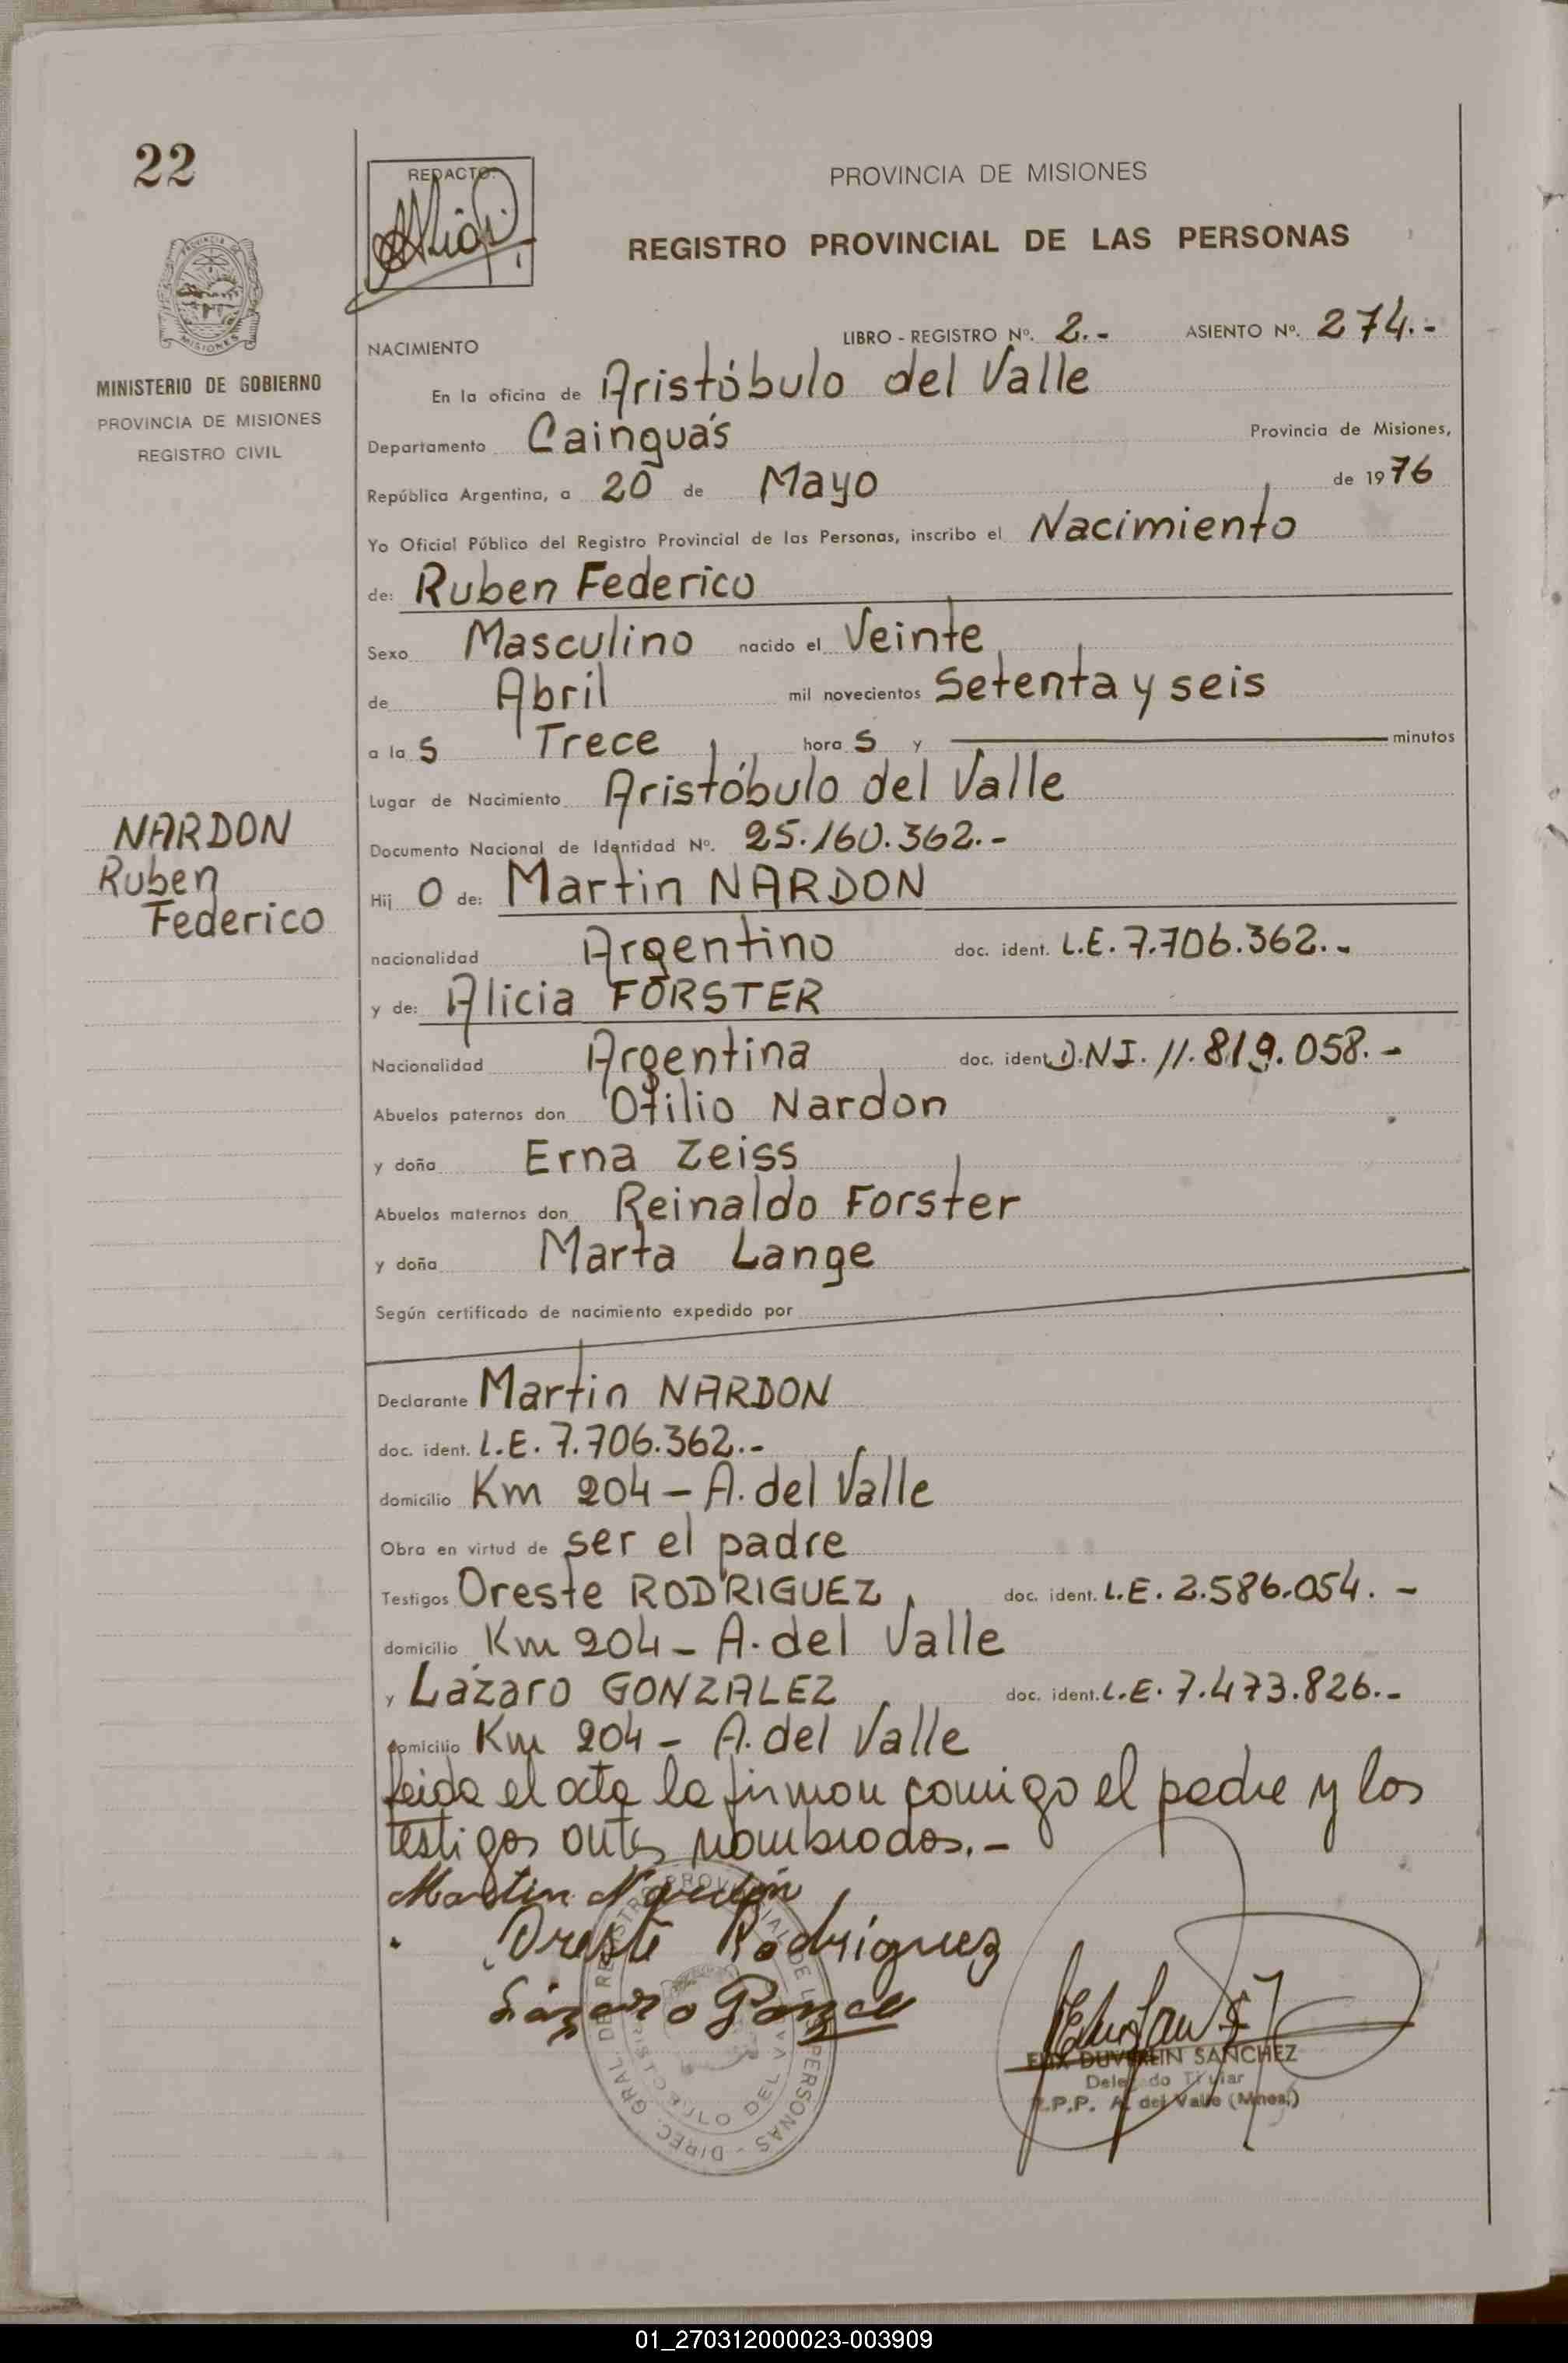 22
REDACTO:
PROVINCIA DE MISIONES
REGISTRO PROVINCIAL DE LAS PERSONAS
MINISTERIO DE GOBIERNO
PROVINCIA DE MISIONES
REGISTRO CIVIL
NACIMIENTO LIBRO - REGISTRO Nº. 2.- ASIENTO Nº. 274.-
En la oficina de Aristóbulo del Valle
Departamento Cainguás Provincia de Misiones,
República Argentina, a 20 de Mayo de 1976
Yo Oficial Público del Registro Provincial de las Personas, inscribo el Nacimiento
de: Ruben Federico
Sexo Masculino nacido el Veinte
de Abril mil novecientos Setenta y seis
a la s Trece hora s y minutos
Lugar de Nacimiento Aristóbulo del Valle
NARDON
Ruben
Federico
Documento Nacional de Identidad Nº. 25.160.362.-
Hij o de: Martin NARDON
nacionalidad Argentino doc. ident. L.E. 7.706.362.-
y de: Alicia FORSTER
Nacionalidad Argentina doc. ident D.N.I. 11.819.058.-
Abuelos paternos don Otilio Nardon
y doña Erna Zeiss
Abuelos maternos don Reinaldo Forster
y doña Marta Lange
Según certificado de nacimiento expedido por
Declarante Martin NARDON
doc. ident. L.E. 7.706.362.-
domicilio Km 204 - A. del Valle
Obra en virtud de ser el padre
Testigos Oreste RODRIGUEZ doc. ident. L.E. 2.586.054.-
domicilio Km 204 - A. del Valle
y Lázaro GONZALEZ doc. ident. L.E. 7.473.826.-
domicilio Km 204 - A. del Valle
Leida el acta la firman comigo el padre y los
testigos antes nombrados.-
Martin Nardon
Oreste Rodríguez
Lázaro Gonzal
DUVERLIN SANCHEZ
Delegado Titular
R.P.P. A. del Valle (Mnes.)
01_270312000023-003909